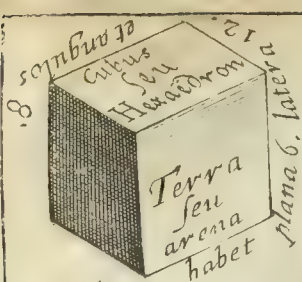 Cubus
ſeu
Hexaëdron
Terra
ſeu
arena
habet
plana 6, latera 12.
et angulos
8.